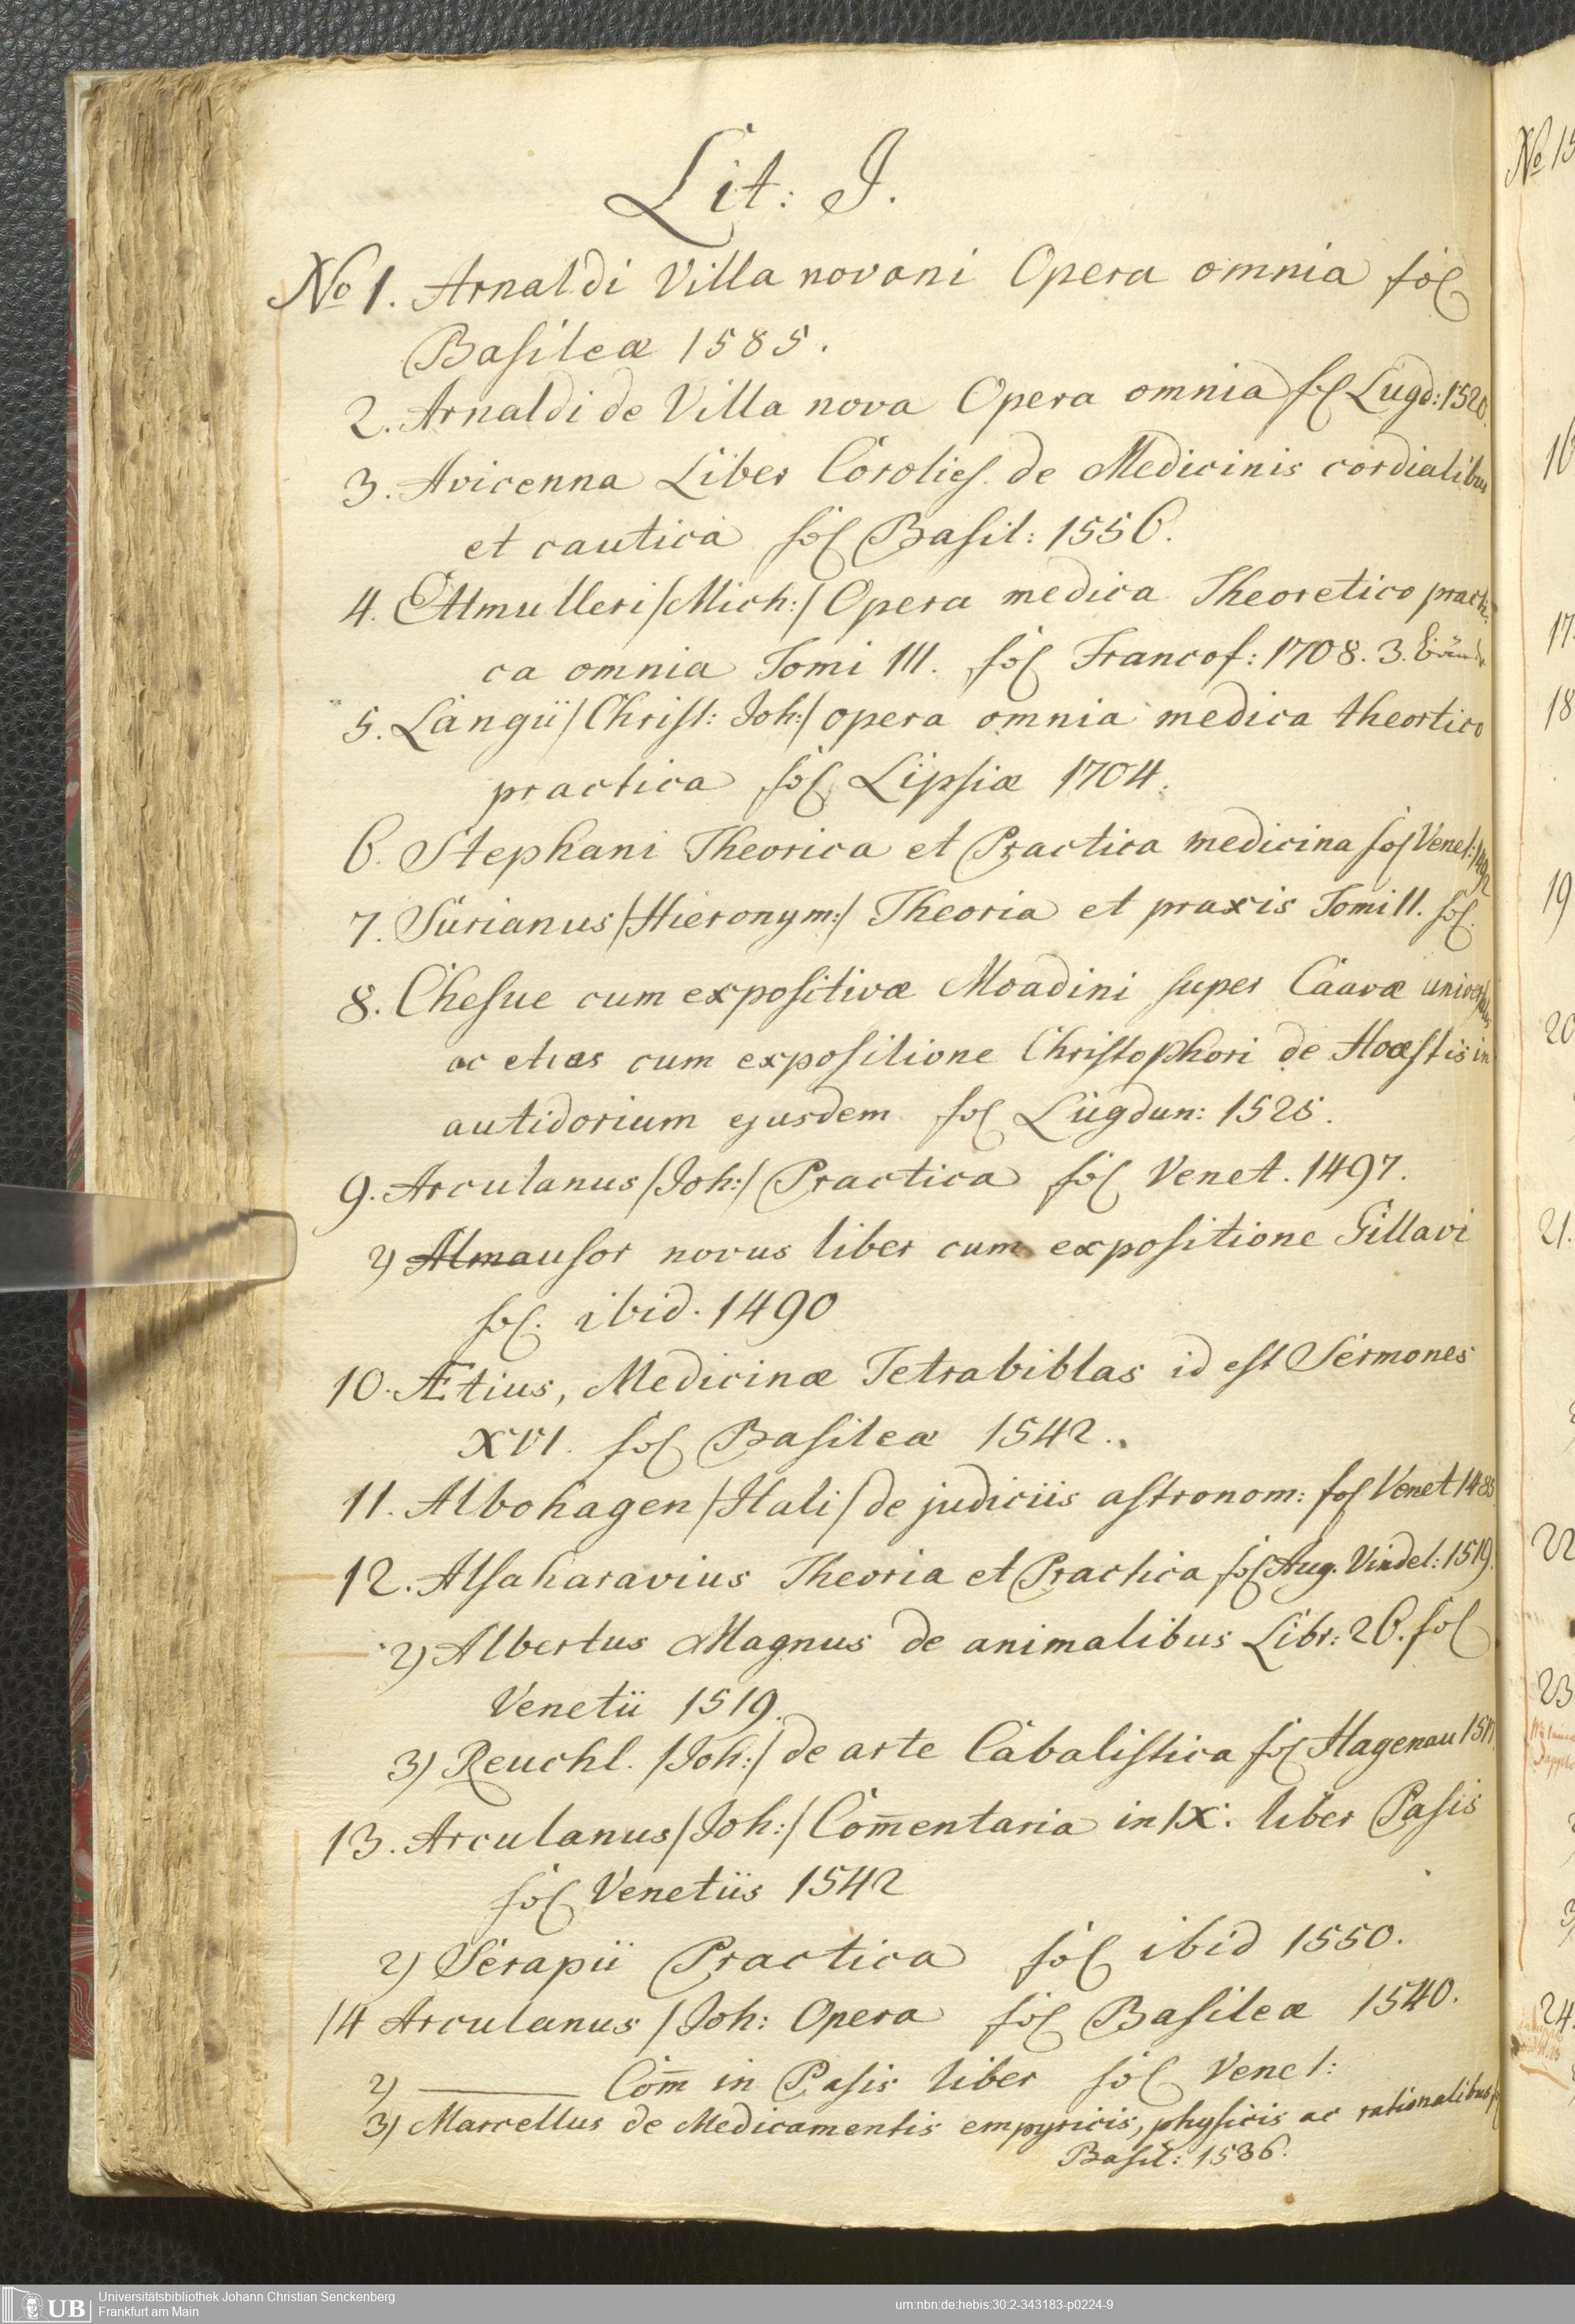 Lit: I.
No 1. Arnaldi Villa novani Opera omnia fol
Basileæ 1585.
2. Arnaldi de Villa nova Opera omnia fol Lugd: 1520.
3. Avicenna Liber Corolies. de Medicinis cordialibus
et cautica fol Basil: 1556.
4. Ettmulleri /Mich:/ Opera medica Theoretico practi
ca omnia Tomi III. fol Francof: 1708. 3. Bände
5. Langii /Christ: Joh:/ opera omnia medica theortico
practica fol Lipsiæ 1704.
6. Stephani Theorica et Practica medicina fol Venet: 1492
7. Surianus /Hieronym:/ Theoria et praxis Tomi II. fol.
8. Chesue cum expositivæ Moadini super Caavæ
ac etias cum expositione Christophori de Hoæstis in
autidorium ejusdem fol Lugdun: 1525.
9. Arculanus /Joh:/ Practica fol Venet. 1497.
2) Almausor novus liber cum expositione Gillavi
fol. ibid. 1490
10. Ætius, Medicinæ Tetrabiblas id est Sermones
XVI. fol Basileæ 1542.
11. Albohagen /Hali/ de judiciis astronom: fol Venet 1485
12. Alsaharavius Theoria et Practica fol Aug. Vindel: 1519.
2) Albertus Magnus de animalibus Libr: 26. fol
Venetii 1519.
3) Reuchl. /Joh:/ de arte Cabalistica fol Hagenau 1517.
13. Arculanus /Joh:/ Com̄entaria in IX. liber Pasis
fol Venetiis 1542
2) Serapii Practica fol ibid 1550.
14 Arculanus /Joh: Opera fol Basileæ 1540.
2) ——— Com̄ in Pasis liber fol Venet:
3) Marcellus de Medicamentis empyricis, physicis ac rationalibus
Basil: 1536.
No 15
16
17.
18
19
20
21.
22
23
24.
Universitätsbibliothek Johann Christian Senckenberg
Frankfurt am Main
UB
urn:nbn:de:hebis:30:2-343183-p0224-9